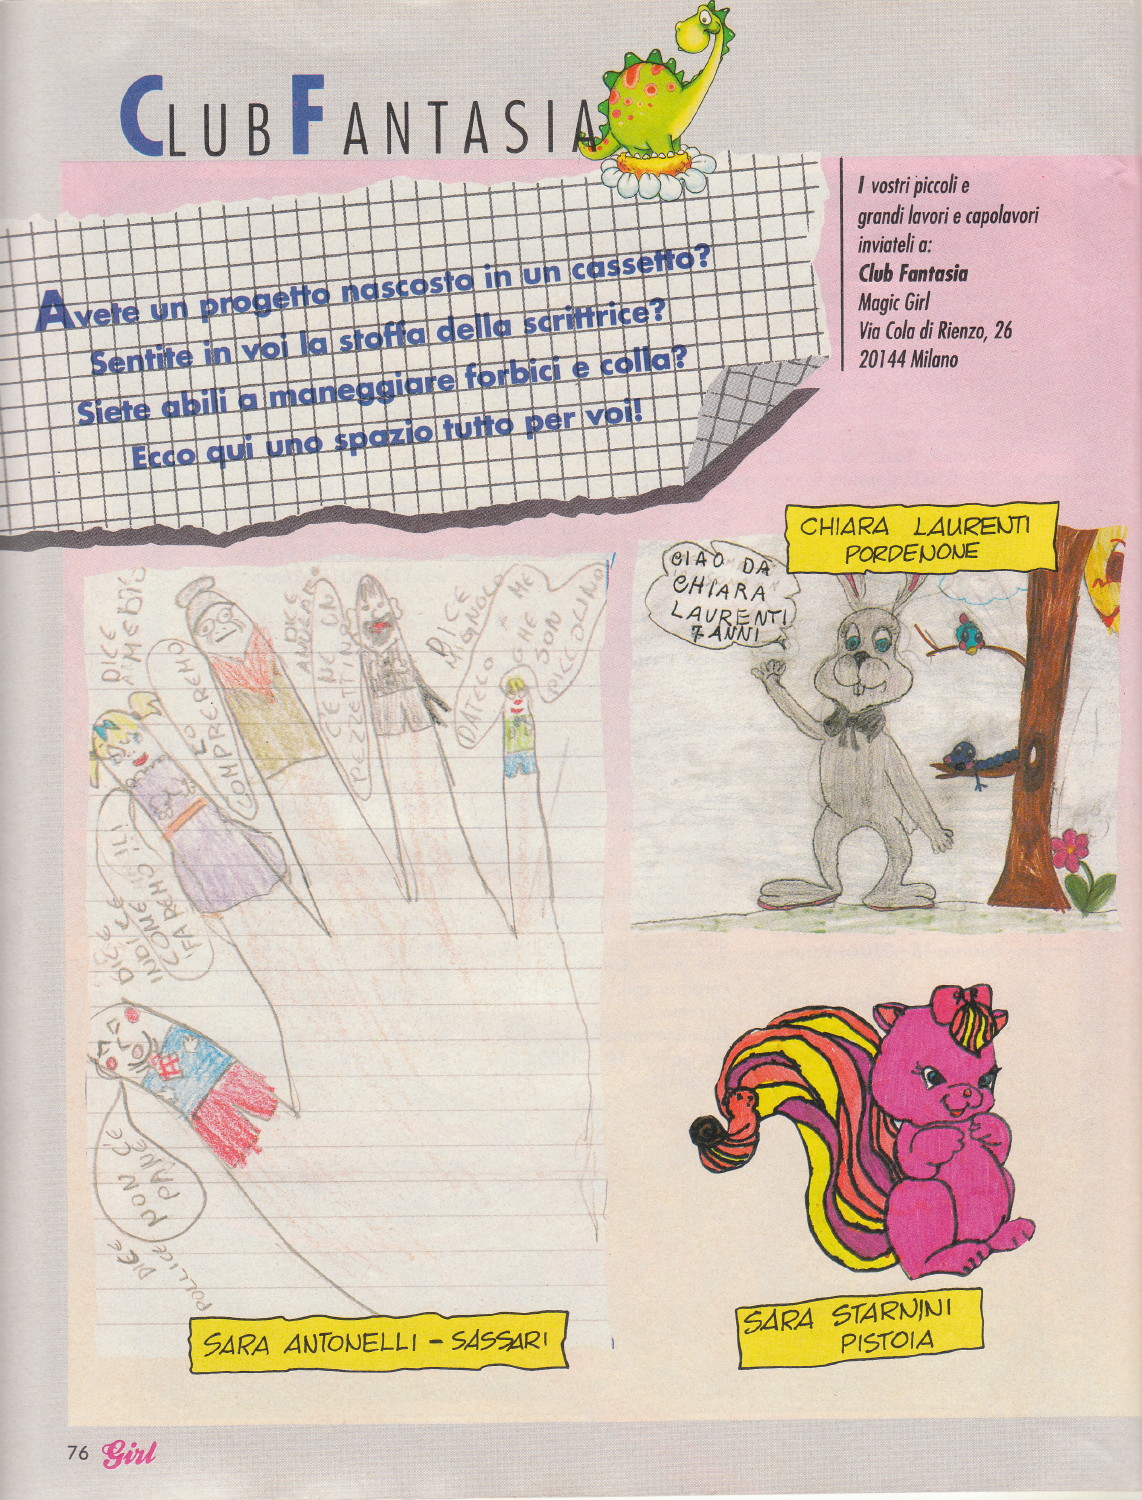 CLUB FANTASIA
I vostri piccoli e
grandi lavori e capolavori
inviateli a:
Club Fantasia
Magic Girl
Via Cola di Rienzo, 26
20144 Milano
Avete un progetto nascosto in un cassetto?
Sentite in voi la stoffa della scrittrice?
Siete abili a maneggiare forbici e colla?
Ecco qui uno spazio tutto per voi!
CHIARA LAURENTI
PORDENONE
CIAO DA
CHIARA
LAURENTI
7 ANNI
DICE
LO
COMPREREMO
DICE
ANULARE
C'È
NE UN
PEZZETTINO
DICE
MIGNOLO
DATELO A ME
CHE SON
PICCOLINO
DICE
INDICE
COME
FAREMO
DICE
POLLICE
NON C'È
PANE
SARA ANTONELLI - SASSARI
SARA STARNINI
PISTOIA
76 Girl